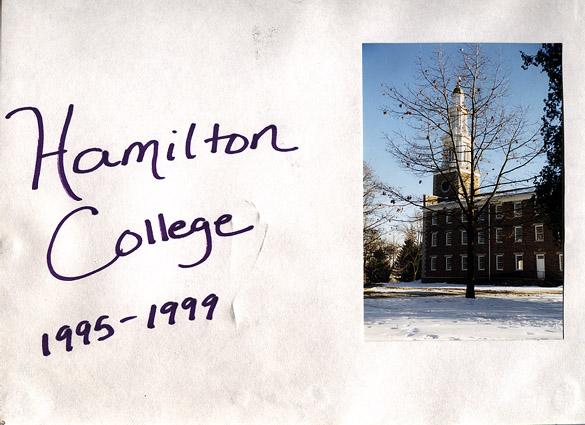 Hamilton
College
1995-1999